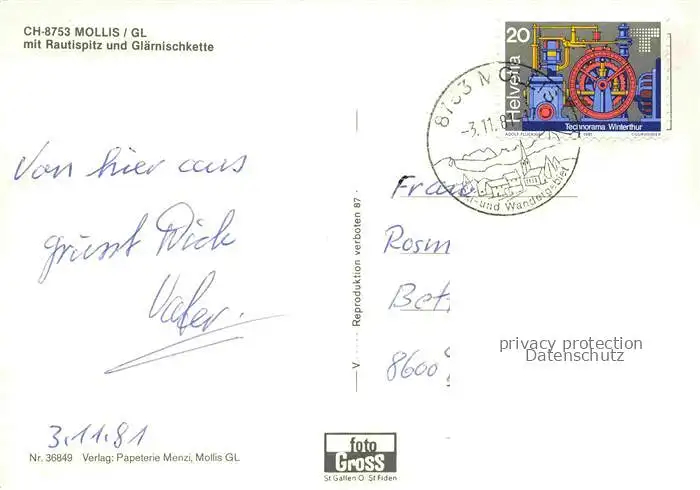 CH-8753 MOLLIS / GL
mit Rautispitz und Glärnischkette
20
Helvetia
Technorama Winterthur
ADOLF FLÜCKIGER 1981 COURVOISIER
-3.11.81
und Wandergebiet
Von hier aus
grüsst Dich
Vater.
3.11.81
V Reproduktion verboten 87
8600
privacy protection
Datenschutz
Nr. 36849 Verlag: Papeterie Menzi, Mollis GL
foto
Gross
St Gallen O St Fiden